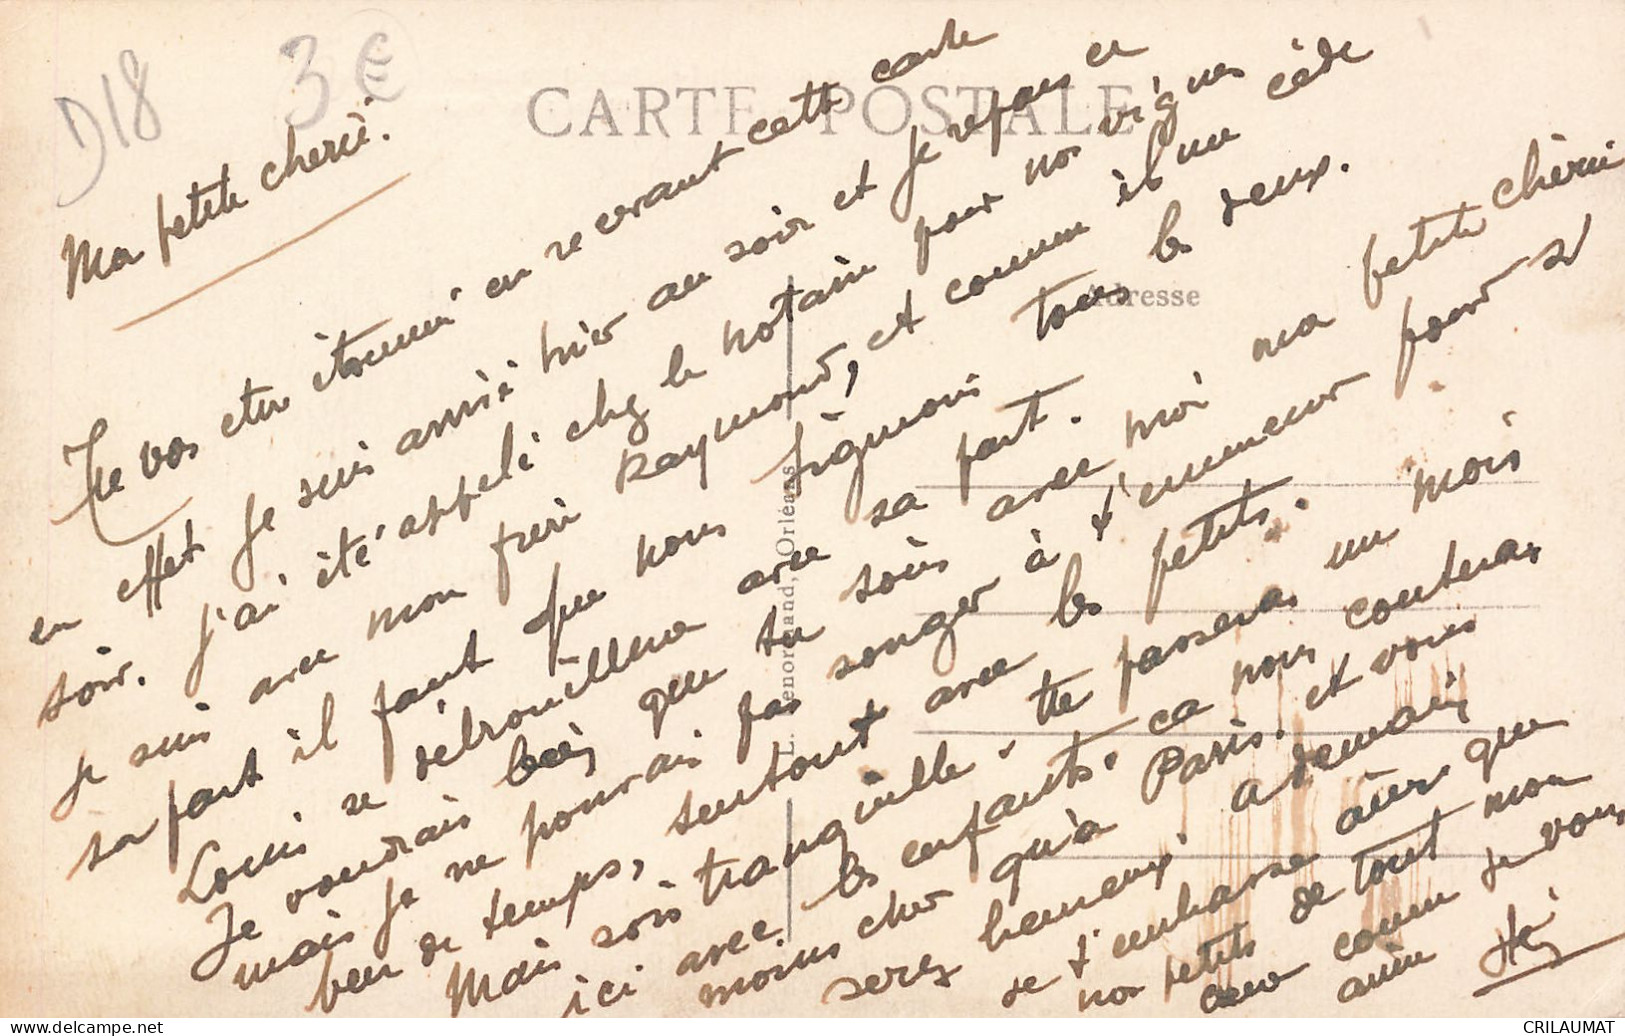 D18 3€
CARTE POSTALE
Adresse
L. Lenormand, Orléans
Ma petite cherie.
Tu vas être étonné en recevant cette carte
en effet je suis arrivé hier au soir et je repars ce
soir. j'ai été appelé chez le notaire pour nos vignes
je suis avec mon frère Raymond, et comme il me cède
sa part il faut que nous signions tous les deux.
Louis se débrouillera avec sa part.
Je voudrais bien que tu sois avec moi ma petite chérie
mais je ne pourrais pas songer à t'emmener pour si
peu de temps, surtout avec les petits.
Mais sois tranquille. tu passeras un mois
ici avec les enfants. ça nous coutera
moins cher qu'à Paris. et vous
serez heureux. a demain
je t'embrasse ainsi que
nos petits de tout mon
cœur comme je vous
aime
CRILAUMAT